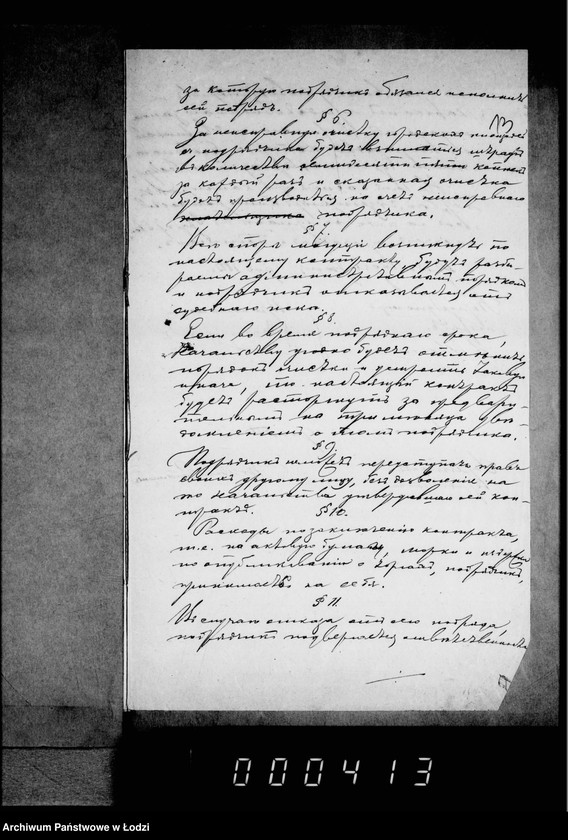 за которую подрядчикъ обязался исполнить
сей подрядъ.
§ 6.
За неисправную очистку городскихъ
съ подрядчика будетъ взыматься штрафъ
въ количествѣ семидесяти пяти копѣекъ
за каждый разъ и сказанная очистка
будетъ производиться на счетъ неисправнаго
подрядчика.
§ 7.
Всѣ споры могущіе возникнуть по
настоящему контракту будутъ разби-
раемы административнымъ порядкомъ
и подрядчикъ отказывается отъ
судебнаго иска.
§ 8.
Если во время подряднаго срока,
Начальству угодно будетъ отмѣнить
порядокъ очистки и устроить таковую
иначе, то настоящій контрактъ
будетъ расторгнутъ за предвари-
тельнымъ за три мѣсяца увѣ-
домленіемъ о томъ подрядчика.
§ 9.
Подрядчикъ не можетъ переуступать правъ
своихъ другому лицу, безъ дозволенія на
то Начальства утвердившаго сей кон-
трактъ.
§ 10.
Расходы по заключенію контракта,
т.е. на актовую бумагу, марки и
по опубликованію о торгахъ, подрядчикъ,
принимаетъ на себя.
§ 11.
Въ случаѣ отказа отъ сего подряда,
подрядчикъ подвергается отвѣтственности
000413
Archiwum Państwowe w Łodzi